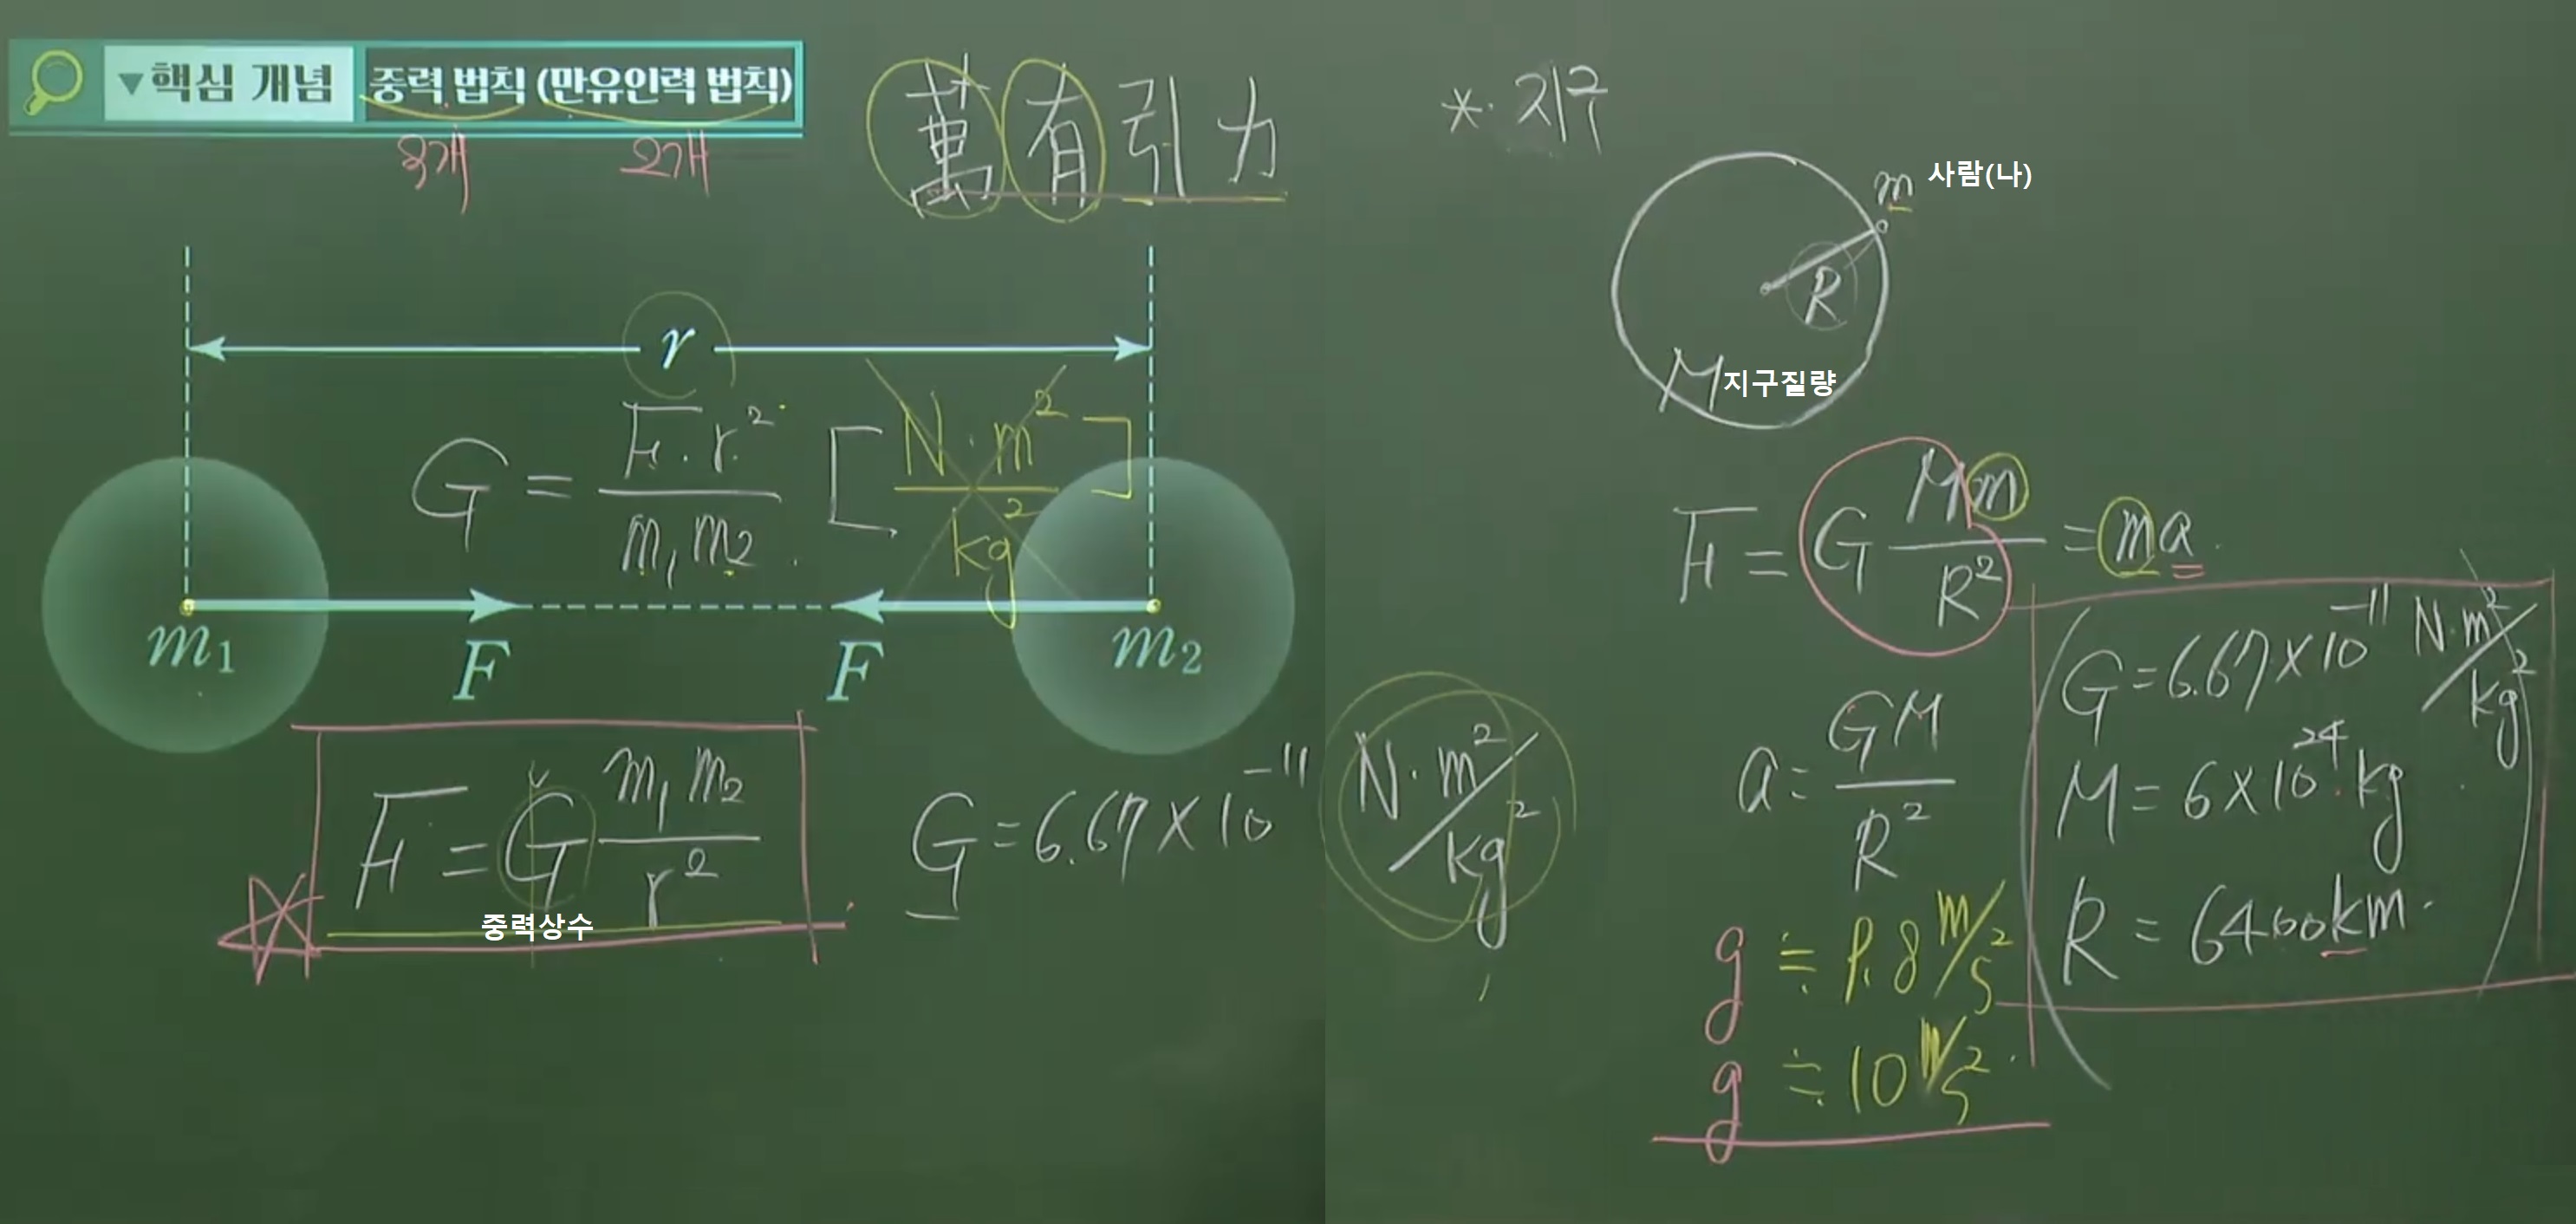 ▼핵심 개념 중력 법칙 (만유인력 법칙)
3개 2개
萬有引力
r
G = F·r² / m₁m₂ [N·m² / kg²]
m₁ F F m₂
F = G m₁m₂ / r²
중력상수
G = 6.67 × 10⁻¹¹ N·m²/kg²
*. 지구
m 사람(나)
R
M 지구질량
F = G Mm / R² = ma.
a = GM / R²
g ≒ 9.8 m/s²
g ≒ 10 m/s².
G = 6.67 × 10⁻¹¹ N·m²/kg²
M = 6 × 10²⁴ kg
R = 6400km.